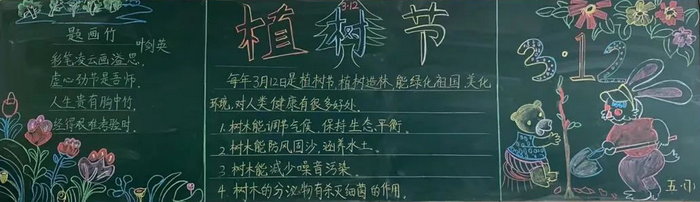 题画竹
叶剑英
彩笔凌云画溢思,
虚心劲节是吾师.
人生贵有胸中竹,
经得艰难考验时.
3.12
植树节
每年3月12日是植树节,植树造林,能绿化祖国,美化
环境,对人类健康有很多好处.
1.树木能调节气候,保持生态平衡.
2.树木能防风固沙,涵养水土.
3.树木能减少噪音污染.
4.树木的分泌物有杀灭细菌的作用.
3.12